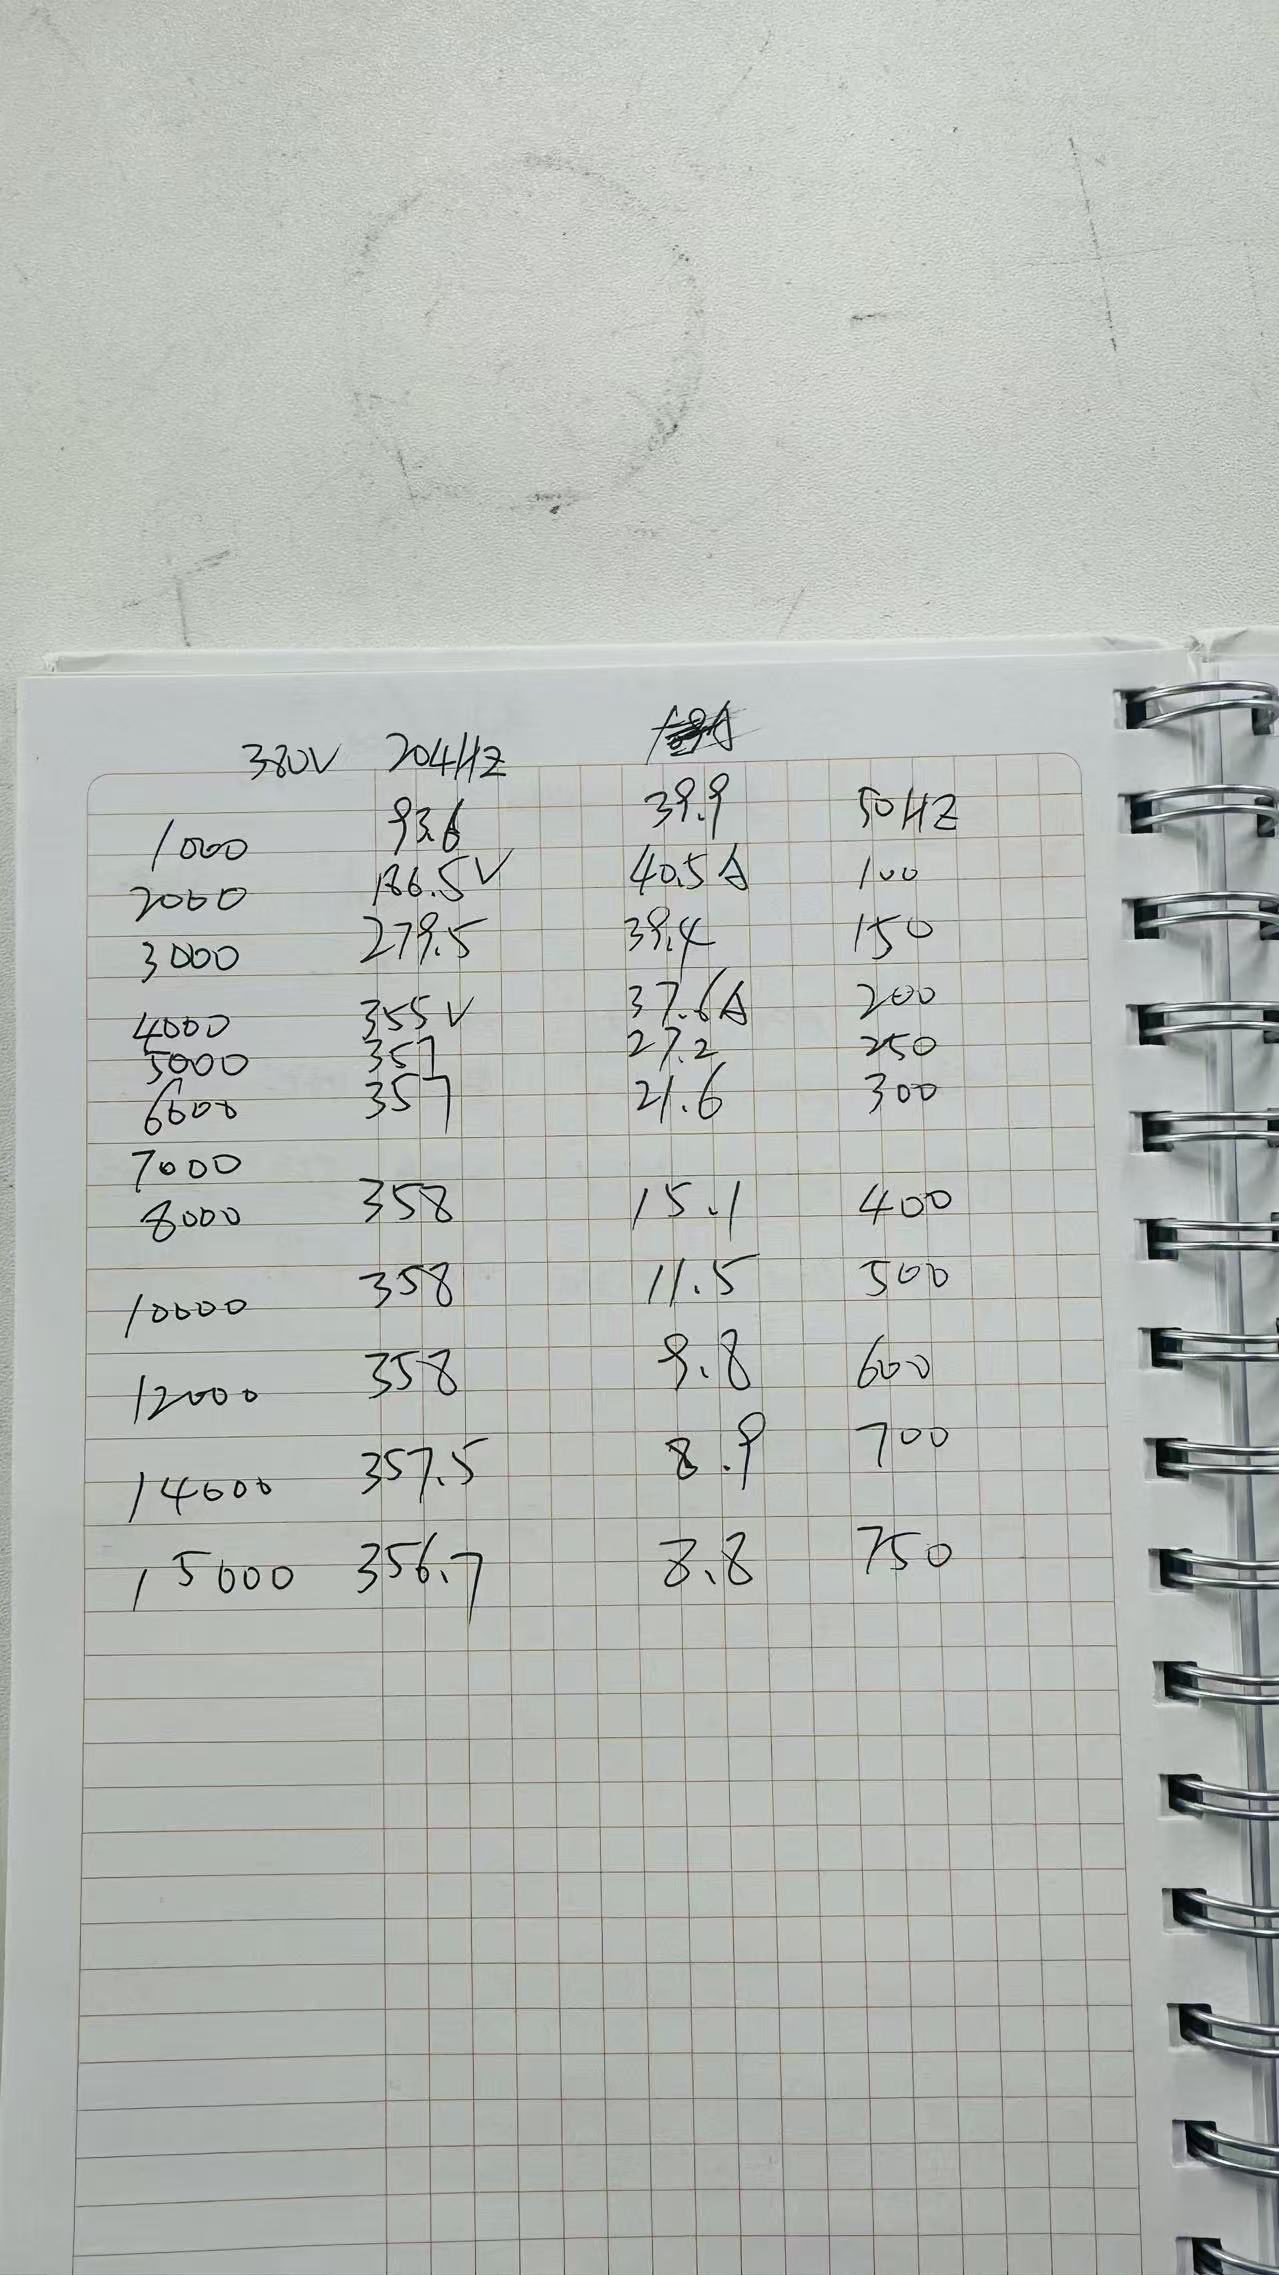 380V 204HZ
1000 93.6 39.9 50HZ
2000 186.5V 40.5A 100
3000 279.5 39.4 150
4000 355V 37.6A 200
5000 357 27.2 250
6000 357 21.6 300
7000
8000 358 15.1 400
10000 358 11.5 500
12000 358 9.8 600
14000 357.5 8.9 700
15000 356.7 8.8 750